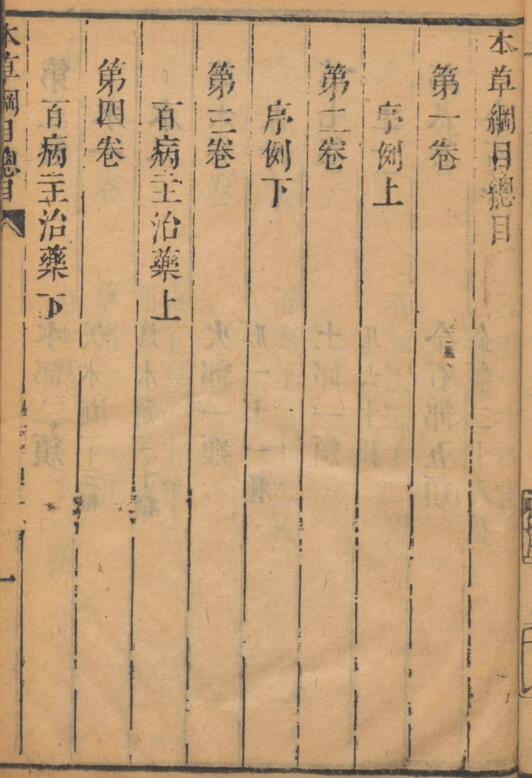 本草綱目總目
第一卷
序例上
第二卷
序例下
第三卷
百病主治藥上
第四卷
百病主治藥下
本草綱目總目
一